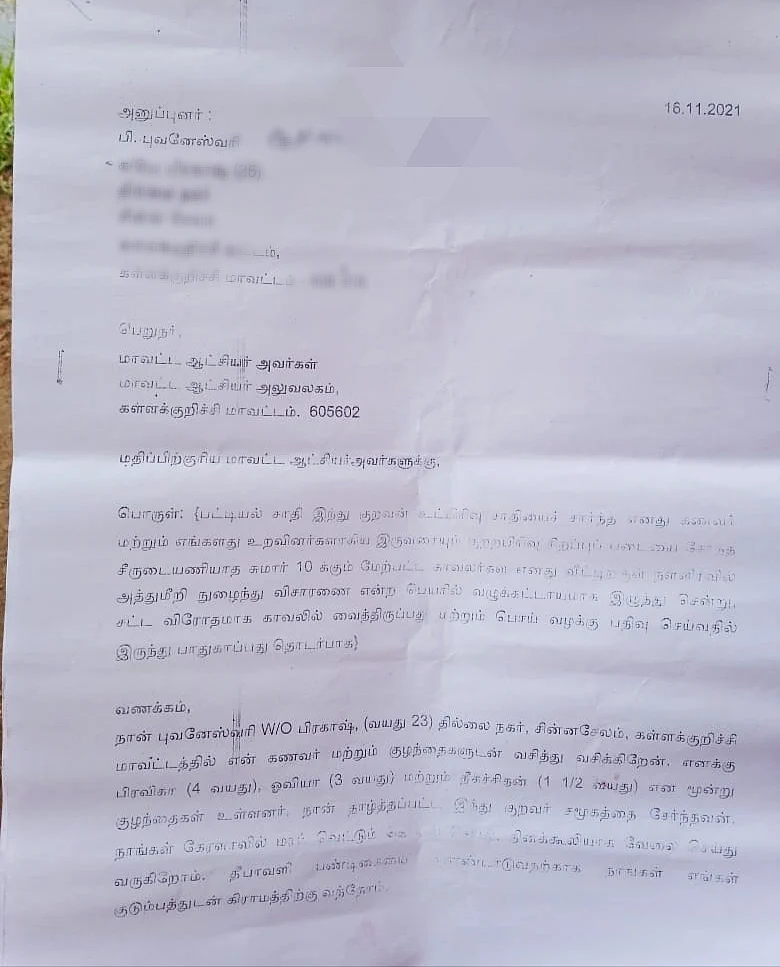 16.11.2021
அனுப்புனர் :
பி. புவனேஸ்வரி
கள்ளக்குறிச்சி மாவட்டம்
பெறுநர்,
மாவட்ட ஆட்சியர் அவர்கள்
மாவட்ட ஆட்சியர் அலுவலகம்,
கள்ளக்குறிச்சி மாவட்டம். 605602
மதிப்பிற்குரிய மாவட்ட ஆட்சியர்அவர்களுக்கு,
பொருள்: {பட்டியல் சாதி இந்து குறவன் உட்பிரிவு சாதியைச் சார்ந்த எனது கணவர்
மற்றும் எங்களது உறவினர்களாகிய இருவரையும் குற்றபிரிவு சிறப்புப் படையை சேர்ந்த
சீருடையணியாத சுமார் 10 க்கும் மேற்பட்ட காவலர்கள் எனது வீட்டிற்குள் நள்ளிரவில்
அத்துமீறி நுழைந்து விசாரணை என்ற பெயரில் வழுக்கட்டாயமாக இழுத்து சென்று,
சட்ட விரோதமாக காவலில் வைத்திருப்பது மற்றும் பொய் வழக்கு பதிவு செய்வதில்
இருந்து பாதுகாப்பது தொடர்பாக}
வணக்கம்,
நான் புவனேஸ்வரி W/O பிரகாஷ், (வயது 23) தில்லை நகர், சின்னசேலம், கள்ளக்குறிச்சி
மாவட்டத்தில் என் கணவர் மற்றும் குழந்தைகளுடன் வசித்து வசிக்கிறேன். எனக்கு
(4 வயது), ஓவியா (3 வயது) மற்றும் (1 1/2 வயது) என மூன்று
குழந்தைகள் உள்ளனர். நான் தாழ்த்தப்பட்ட இந்து குறவர் சமூகத்தை சேர்ந்தவள்.
நாங்கள் கேரளாவில் மரம் வெட்டும் தினக்கூலியாக வேலை செய்து
வருகிறோம். தீபாவளி பண்டிகையை கொண்டாடுவதற்காக நாங்கள் எங்கள்
குடும்பத்துடன் கிராமத்திற்கு வந்தோம்.